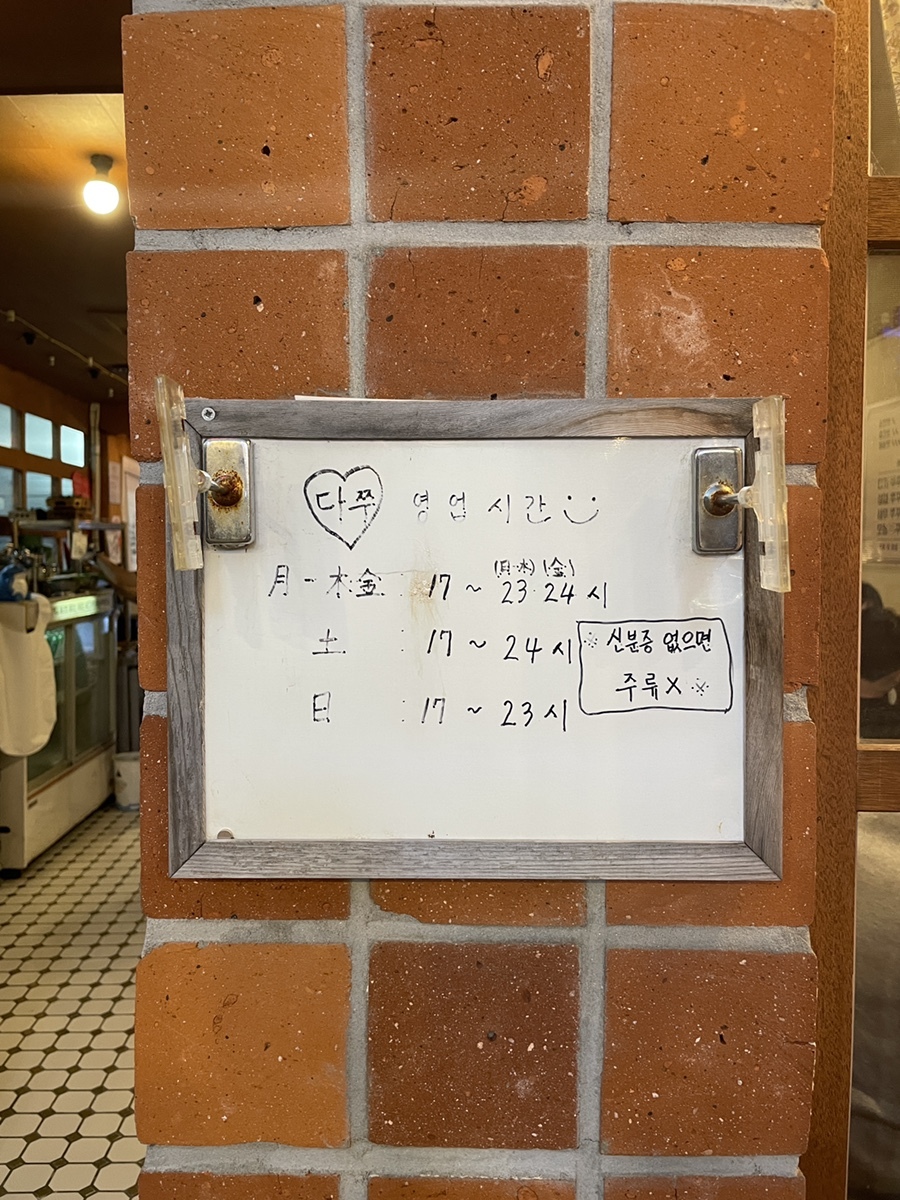 다쭈 영업시간
(月-木) (金)
月-木金 : 17 ~ 23·24시
土 : 17 ~ 24시
日 : 17 ~ 23시
※ 신분증 없으면
주류X ※